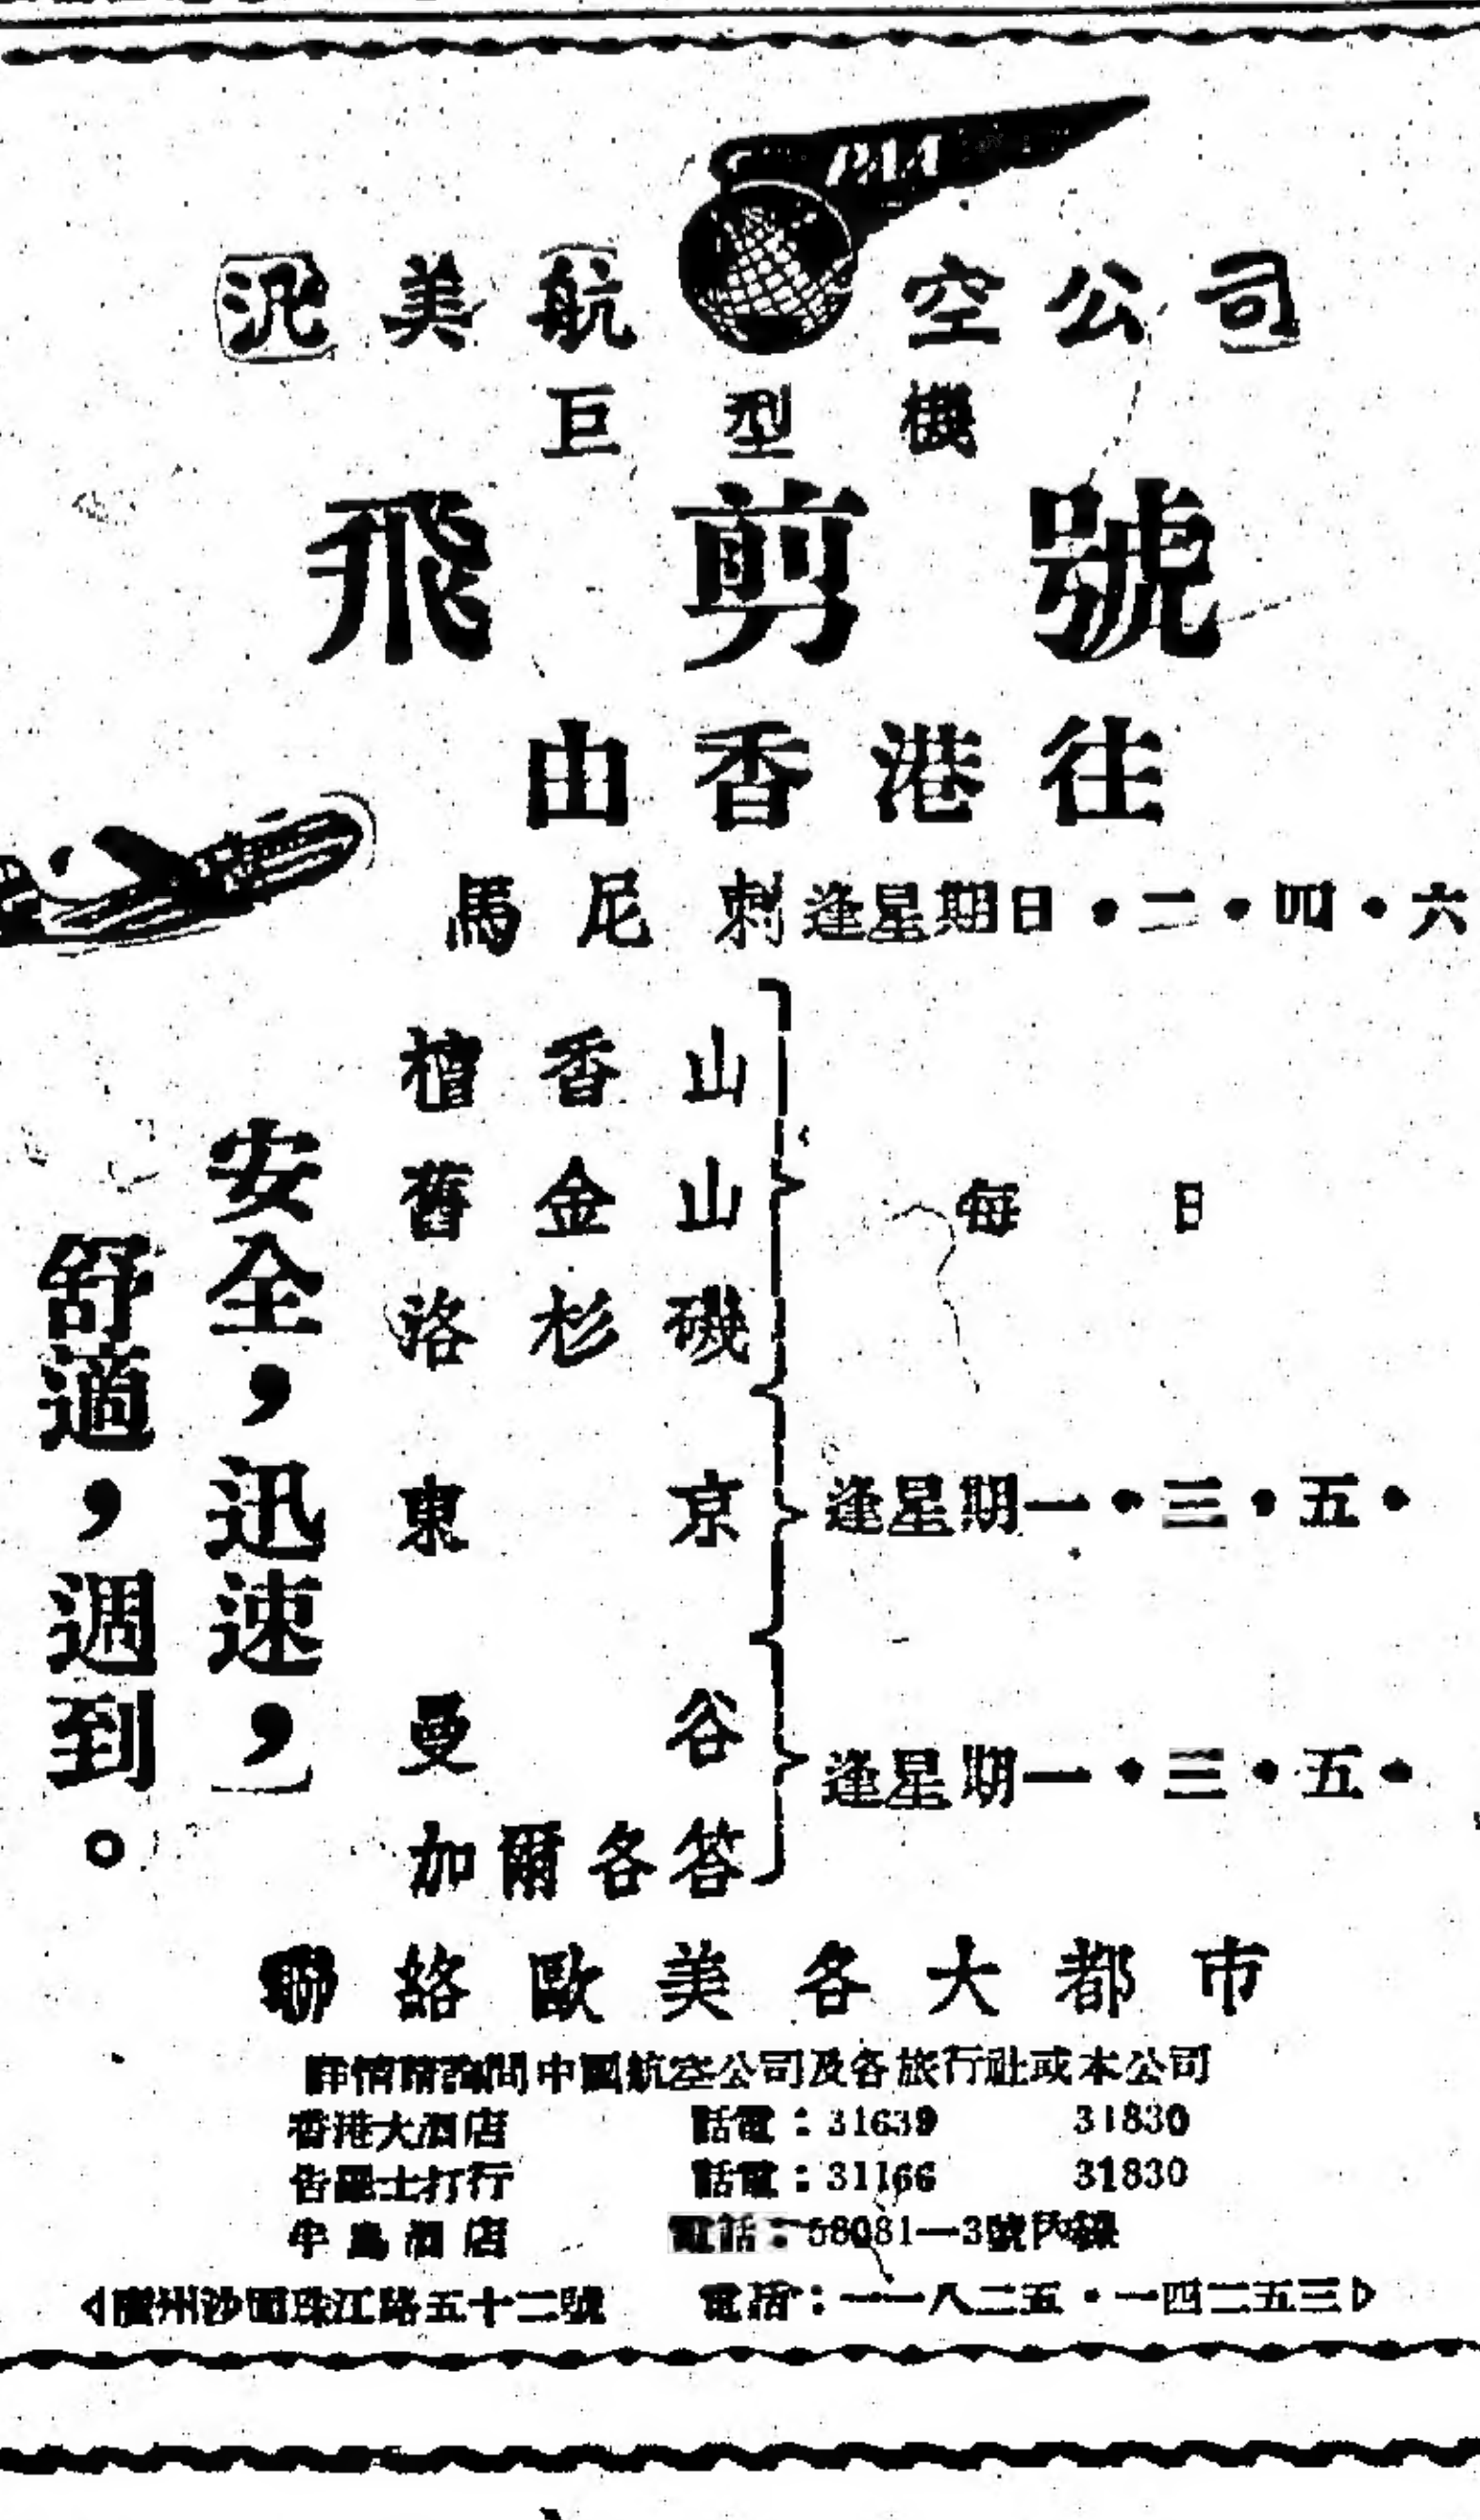 PAA
汎美航空公司
巨型機
飛剪號
由香港往
馬尼剌 逢星期日·二·四·六
檀香山
舊金山 每日
洛杉磯
東京 逢星期一·三·五·
曼谷 逢星期一·三·五·
加爾各答
安全,迅速,
舒適,週到。
聯絡歐美各大都市
詳情請詢問中國航空公司及各旅行社或本公司
香港大酒店 話電:31639 31830
告羅士打行 話電:31166 31830
半島酒店 電話:58081—3號內線
廣州沙面珠江路五十二號 電話:一一八二五·一四二五三